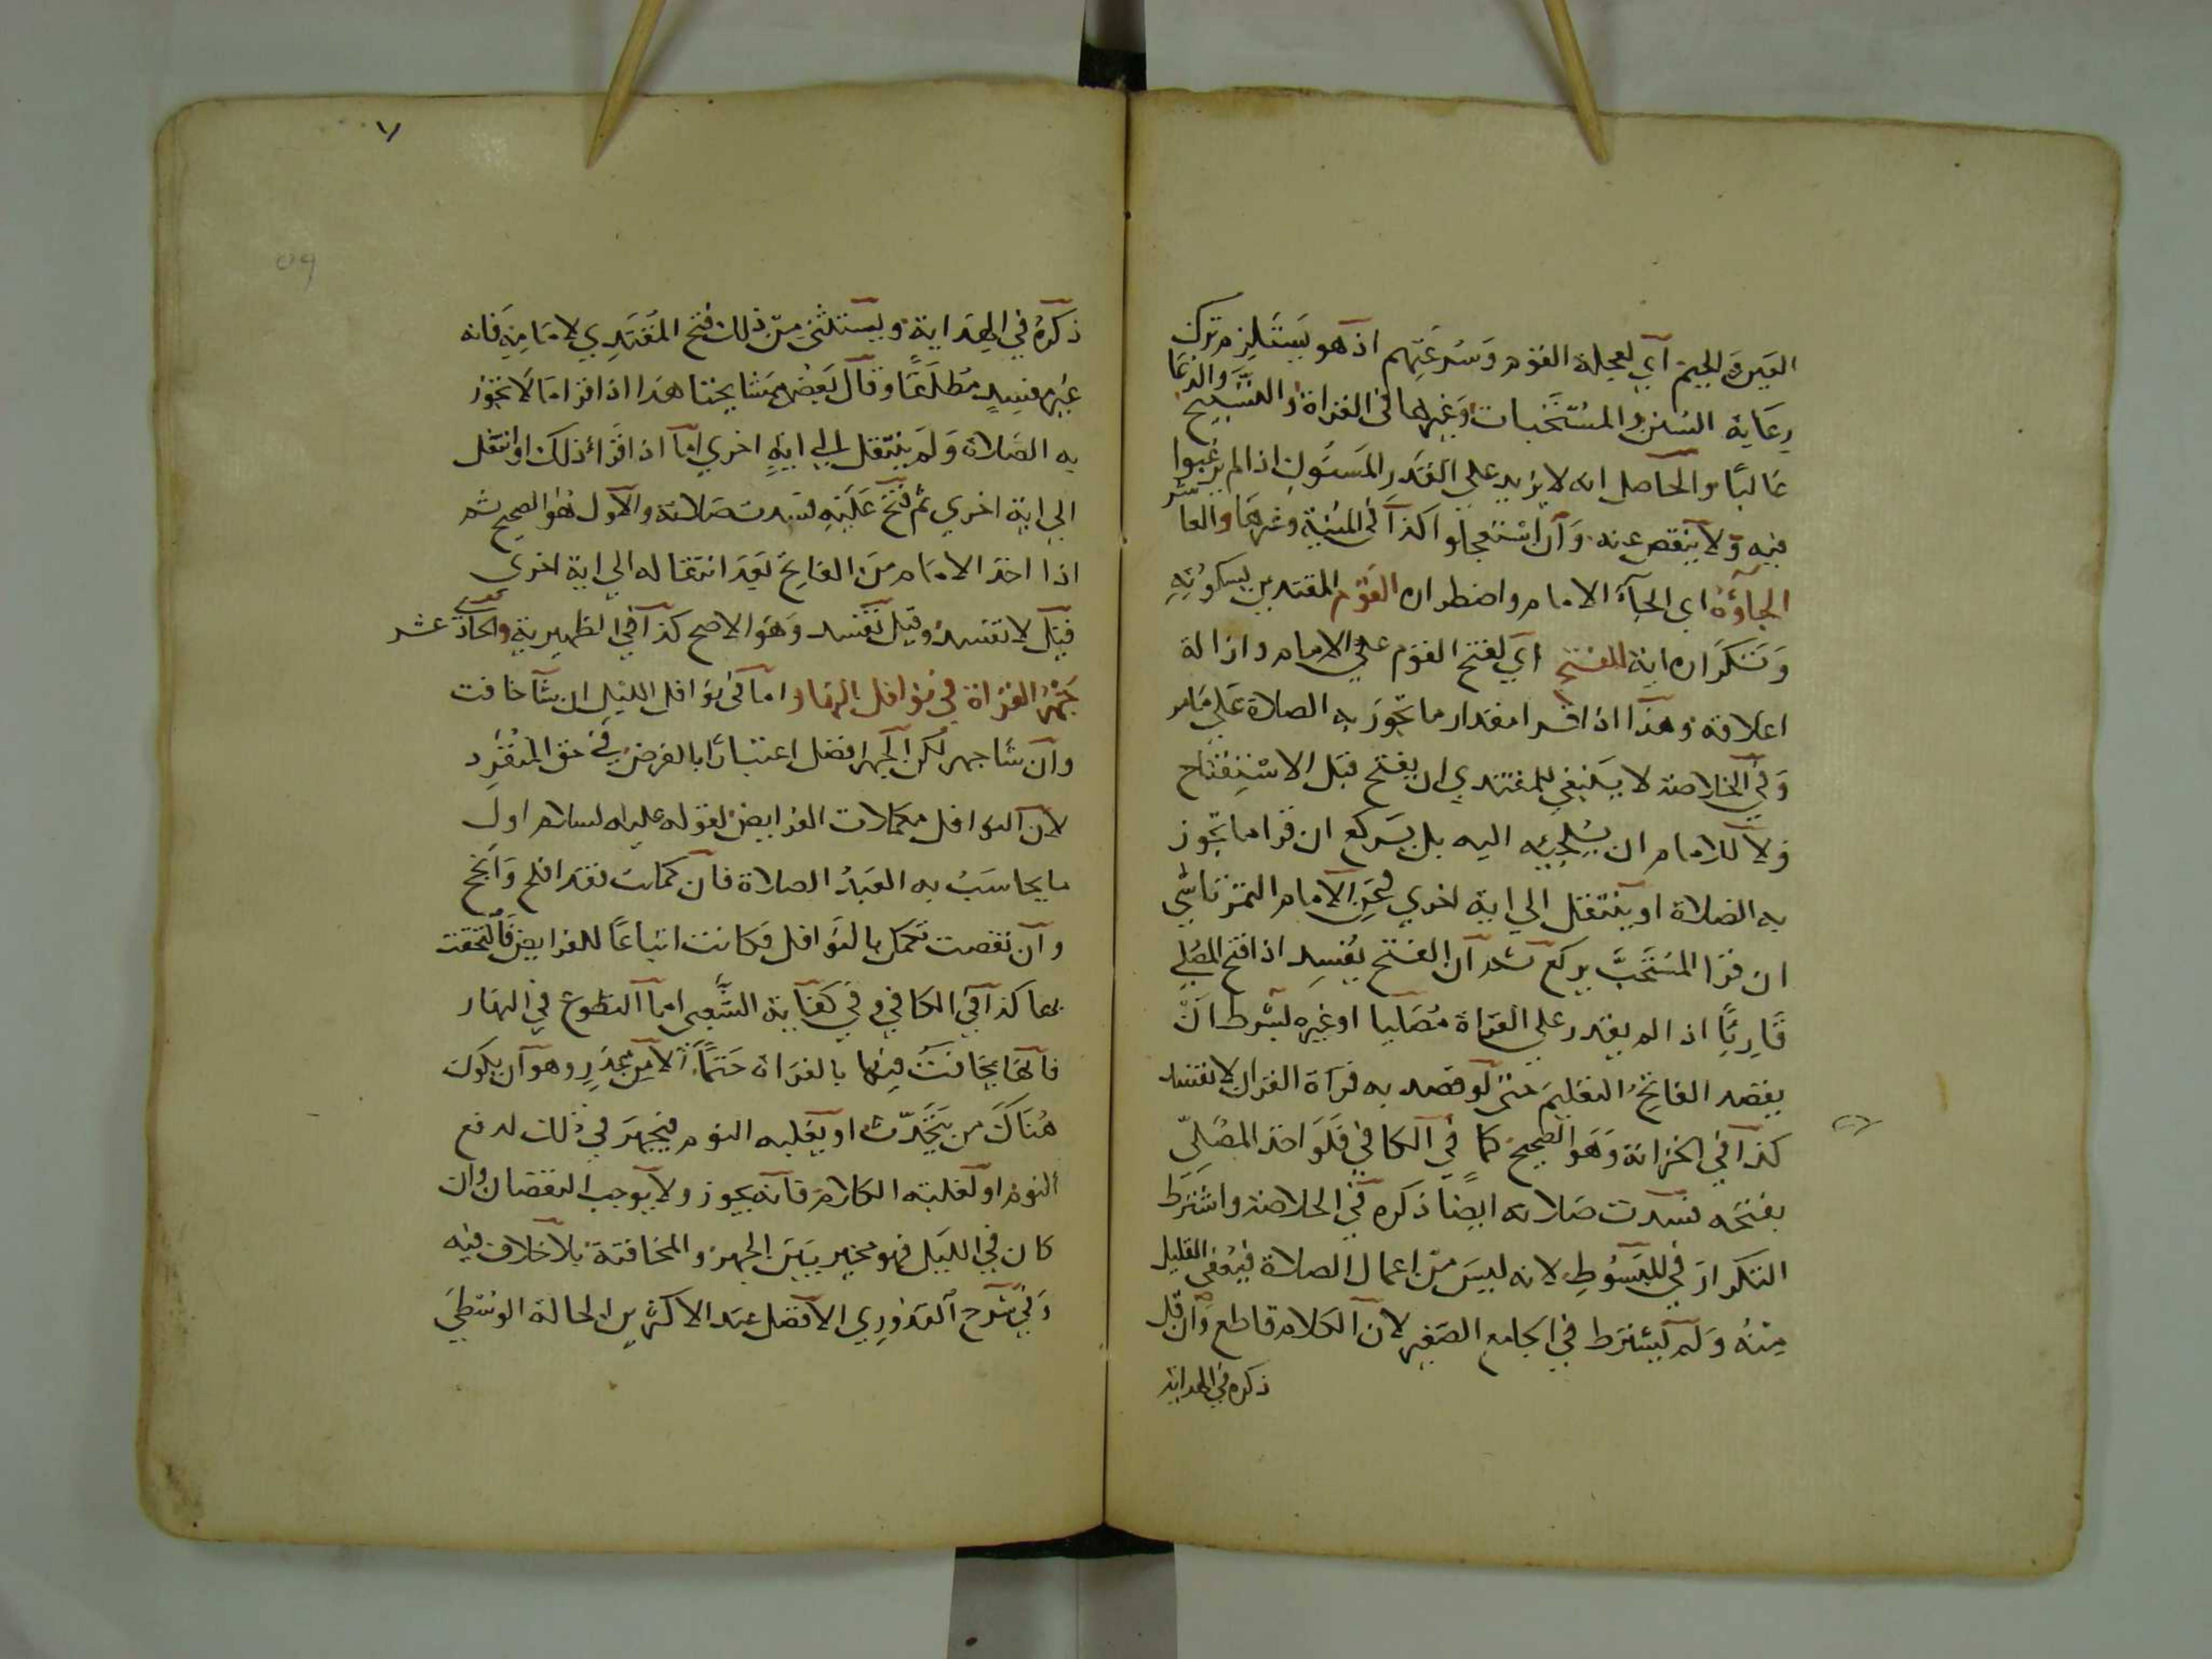 العين والجيم اي لعجلة القوم وسرعتهم اذ هو يستلزم ترك
رعاية السنن والمستحبات وغيرهما في القراة والتسبيح والدعا
غالبا والحاصل انه لا يزيد على القدر المسنون اذا لم يرغبوا
فيه ولا ينقص عنه وان استعجلوا كذا في المنية وغيرها والعاشر
الجاؤه اي الجاء الامام واضطراره القوم المقتدين بسكوته
وتكراره اية للفتح اي لفتح القوم على الامام وازالة
اغلاقه وهذا اذا قرا مقدار ما تجوز به الصلاة على ما مر
وفي الخلاصة لا ينبغي للمقتدي ان يفتح قبل الاستفتاح
ولا للامام ان يلجيه اليه بل يركع ان قرا ما تجوز
به الصلاة او ينتقل الى اية اخرى وعن الامام التمرتاشي
ان قرا المستحب يركع ثم ان الفتح يفسد اذا فتح المصلي
قاريا اذا لم يقدر على القراة مصليا او غيره بشرط ان
يقصد الفاتح التعليم حتى لو قصد به قراة القران لا تفسد
كذا في الخزانة وهو الصحيح كما في الكافي فلو اخذ المصلي
بفتحه فسدت صلاته ايضا ذكره في الخلاصة واشترط
التكرار في المبسوط لانه ليس من اعمال الصلاة فيعفى القليل
منه ولم يشترط في الجامع الصغير لان الكلام قاطع وان قل
ذكره في الهداية
٧
٥٩
ذكره في الهداية ويستثنى من ذلك فتح المقتدي لامامه فانه
غير مفسد مطلقا وقال بعض مشايخنا هذا اذا قرا ما لا تجوز
به الصلاة ولم ينتقل الى اية اخرى اما اذا قرا ذلك او انتقل
الى اية اخرى ثم فتح عليه فسدت صلاته والاول هو الصحيح ثم
اذا اخذ الامام من الفاتح بعد انتقاله الى اية اخرى
قيل لا تفسد وقيل تفسد وهو الاصح كذا في الظهيرية والحادي عشر
جهر القراة في نوافل النهار اما في نوافل الليل ان شا خافت
وان شا جهر لكن الجهر افضل اعتبارا بالفرض في حق المنفرد
لان النوافل مكملات الفرايض لقوله عليه السلام اول
ما يحاسب به العبد الصلاة فان كملت فقد افلح وانجح
وان نقصت تكمل بالنوافل فكانت اتباعا للفرايض فالتحقت
بها كذا في الكافي وفي كفاية الشعبي اما التطوع في النهار
فانها يخافت فيها بالقراة حتما الا من عذر وهو ان يكون
هناك من يتحدث او يغلبه النوم فيجهر في ذلك لدفع
النوم او لغلبة الكلام فانه يجوز ولا يوجب النقصان وان
كان في الليل فهو مخير بين الجهر والمخافتة بلا خلاف فيه
وفي شرح القدوري الافضل عند الاكثرين الحالة الوسطى